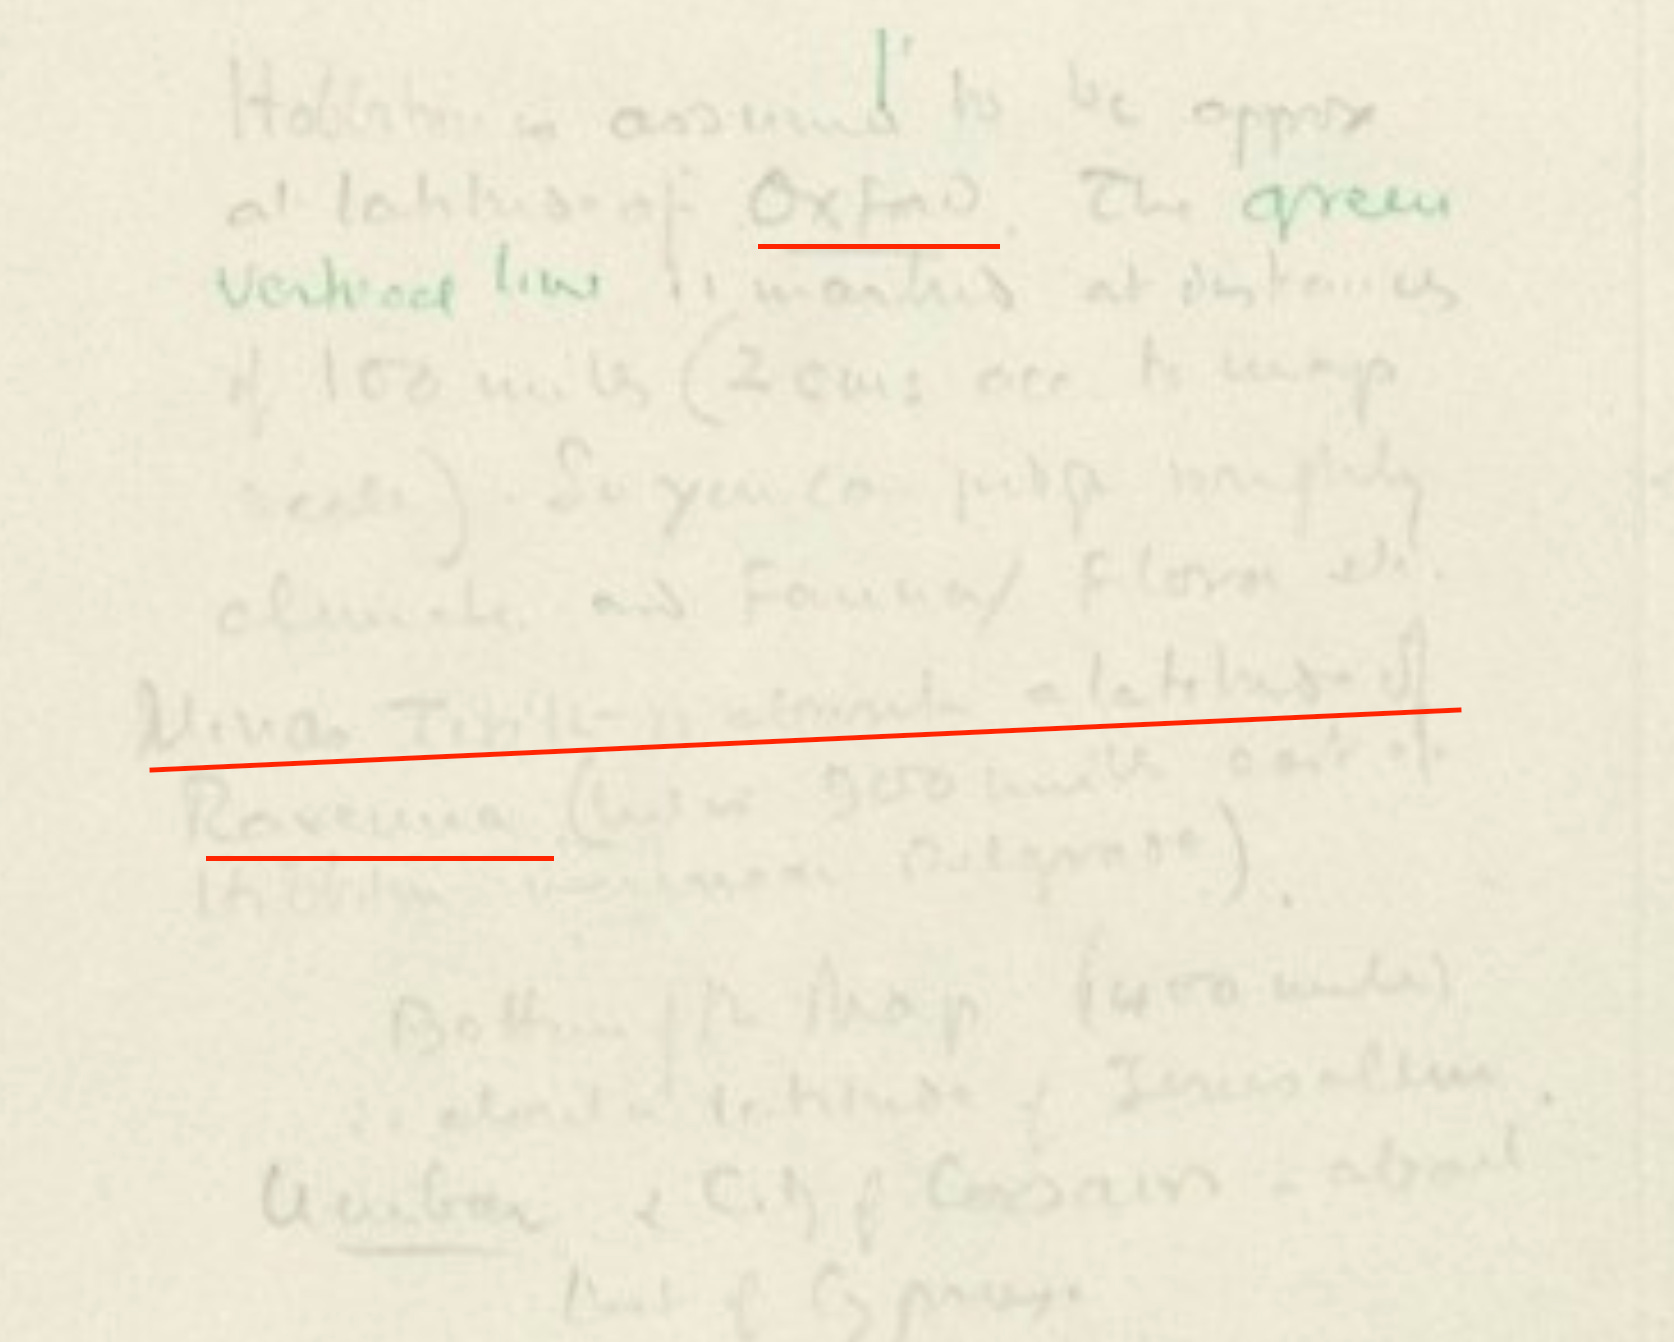 Hobbiton is assumed to be approx
at latitude of Oxford. The green
vertical line is marked at distances
of 100 miles (2 cms acc to map
scale). So you can judge roughly
climate and Fauna/Flora etc.
Minas Tirith is about latitude of
Ravenna (but is 900 miles east of
Hobbiton more near Belgrade).
Bottom of the Map (1400 miles)
is about latitude of Jerusalem.
Umbar & City of Corsairs - about
that of Cyprus.